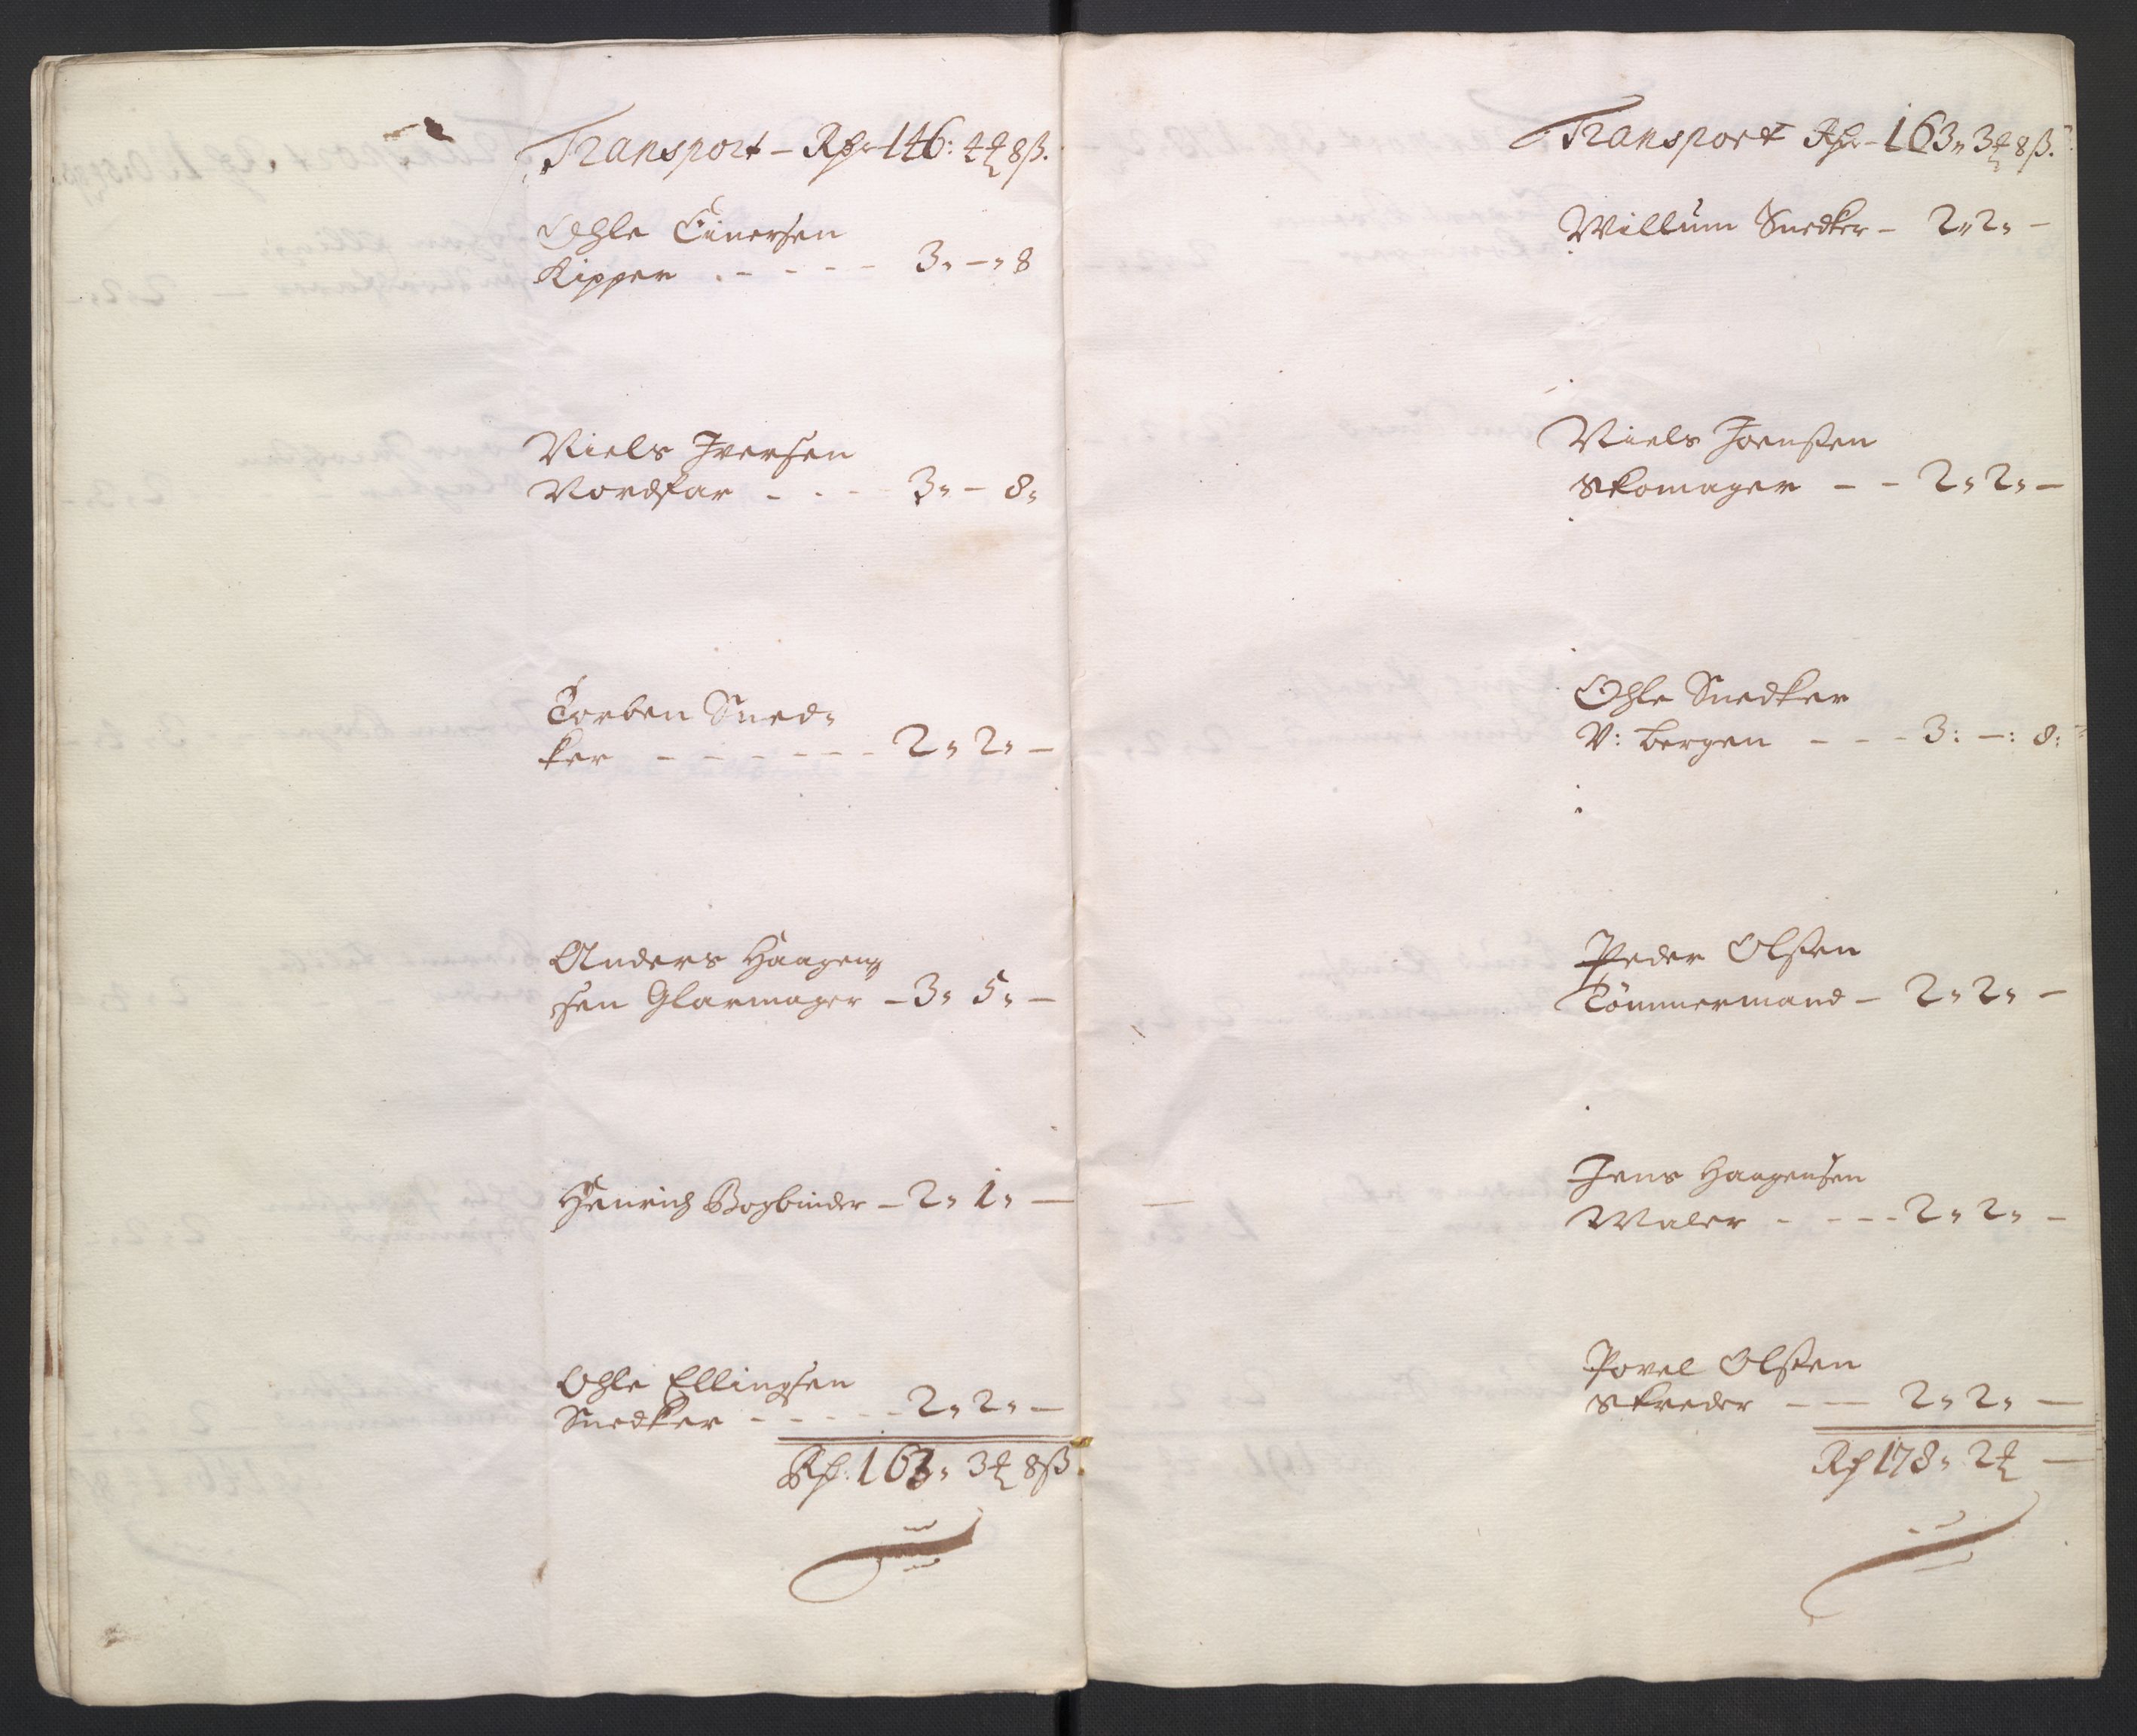 Transport – Rdr 146: 4 ₰ 8 ß.
Ohle Einersen
Kipper . - - - - 3" – " 8
Niels Iversen
Nordfar - - - 3" – 8"
Torben Sned=
ker - - - - - - 2" 2" –
Anders Haagen=
sen Glarmager – 3" 5" –
Henrich Bogbinder – 2" 1" –
Ohle Ellingsen
Snedker - - - - - 2" 2" –
Rd. 163" 3 ₰ 8 ß
Transport Rdr – 163" 3 ₰ 8 ß.
Willum Snedker – 2" 2" –
Niels Joensen
Skomager – – 2" 2" –
Ohle Snedker
V: bergen – – – 3: –: 8:
Peder Olsen
Tömmermand – 2" 2" –
Jens Haagensen
Maler - - - - 2" 2" –
Povel Olsen
Skreder – — 2" 2" –
Rd 178" 2 ₰ —